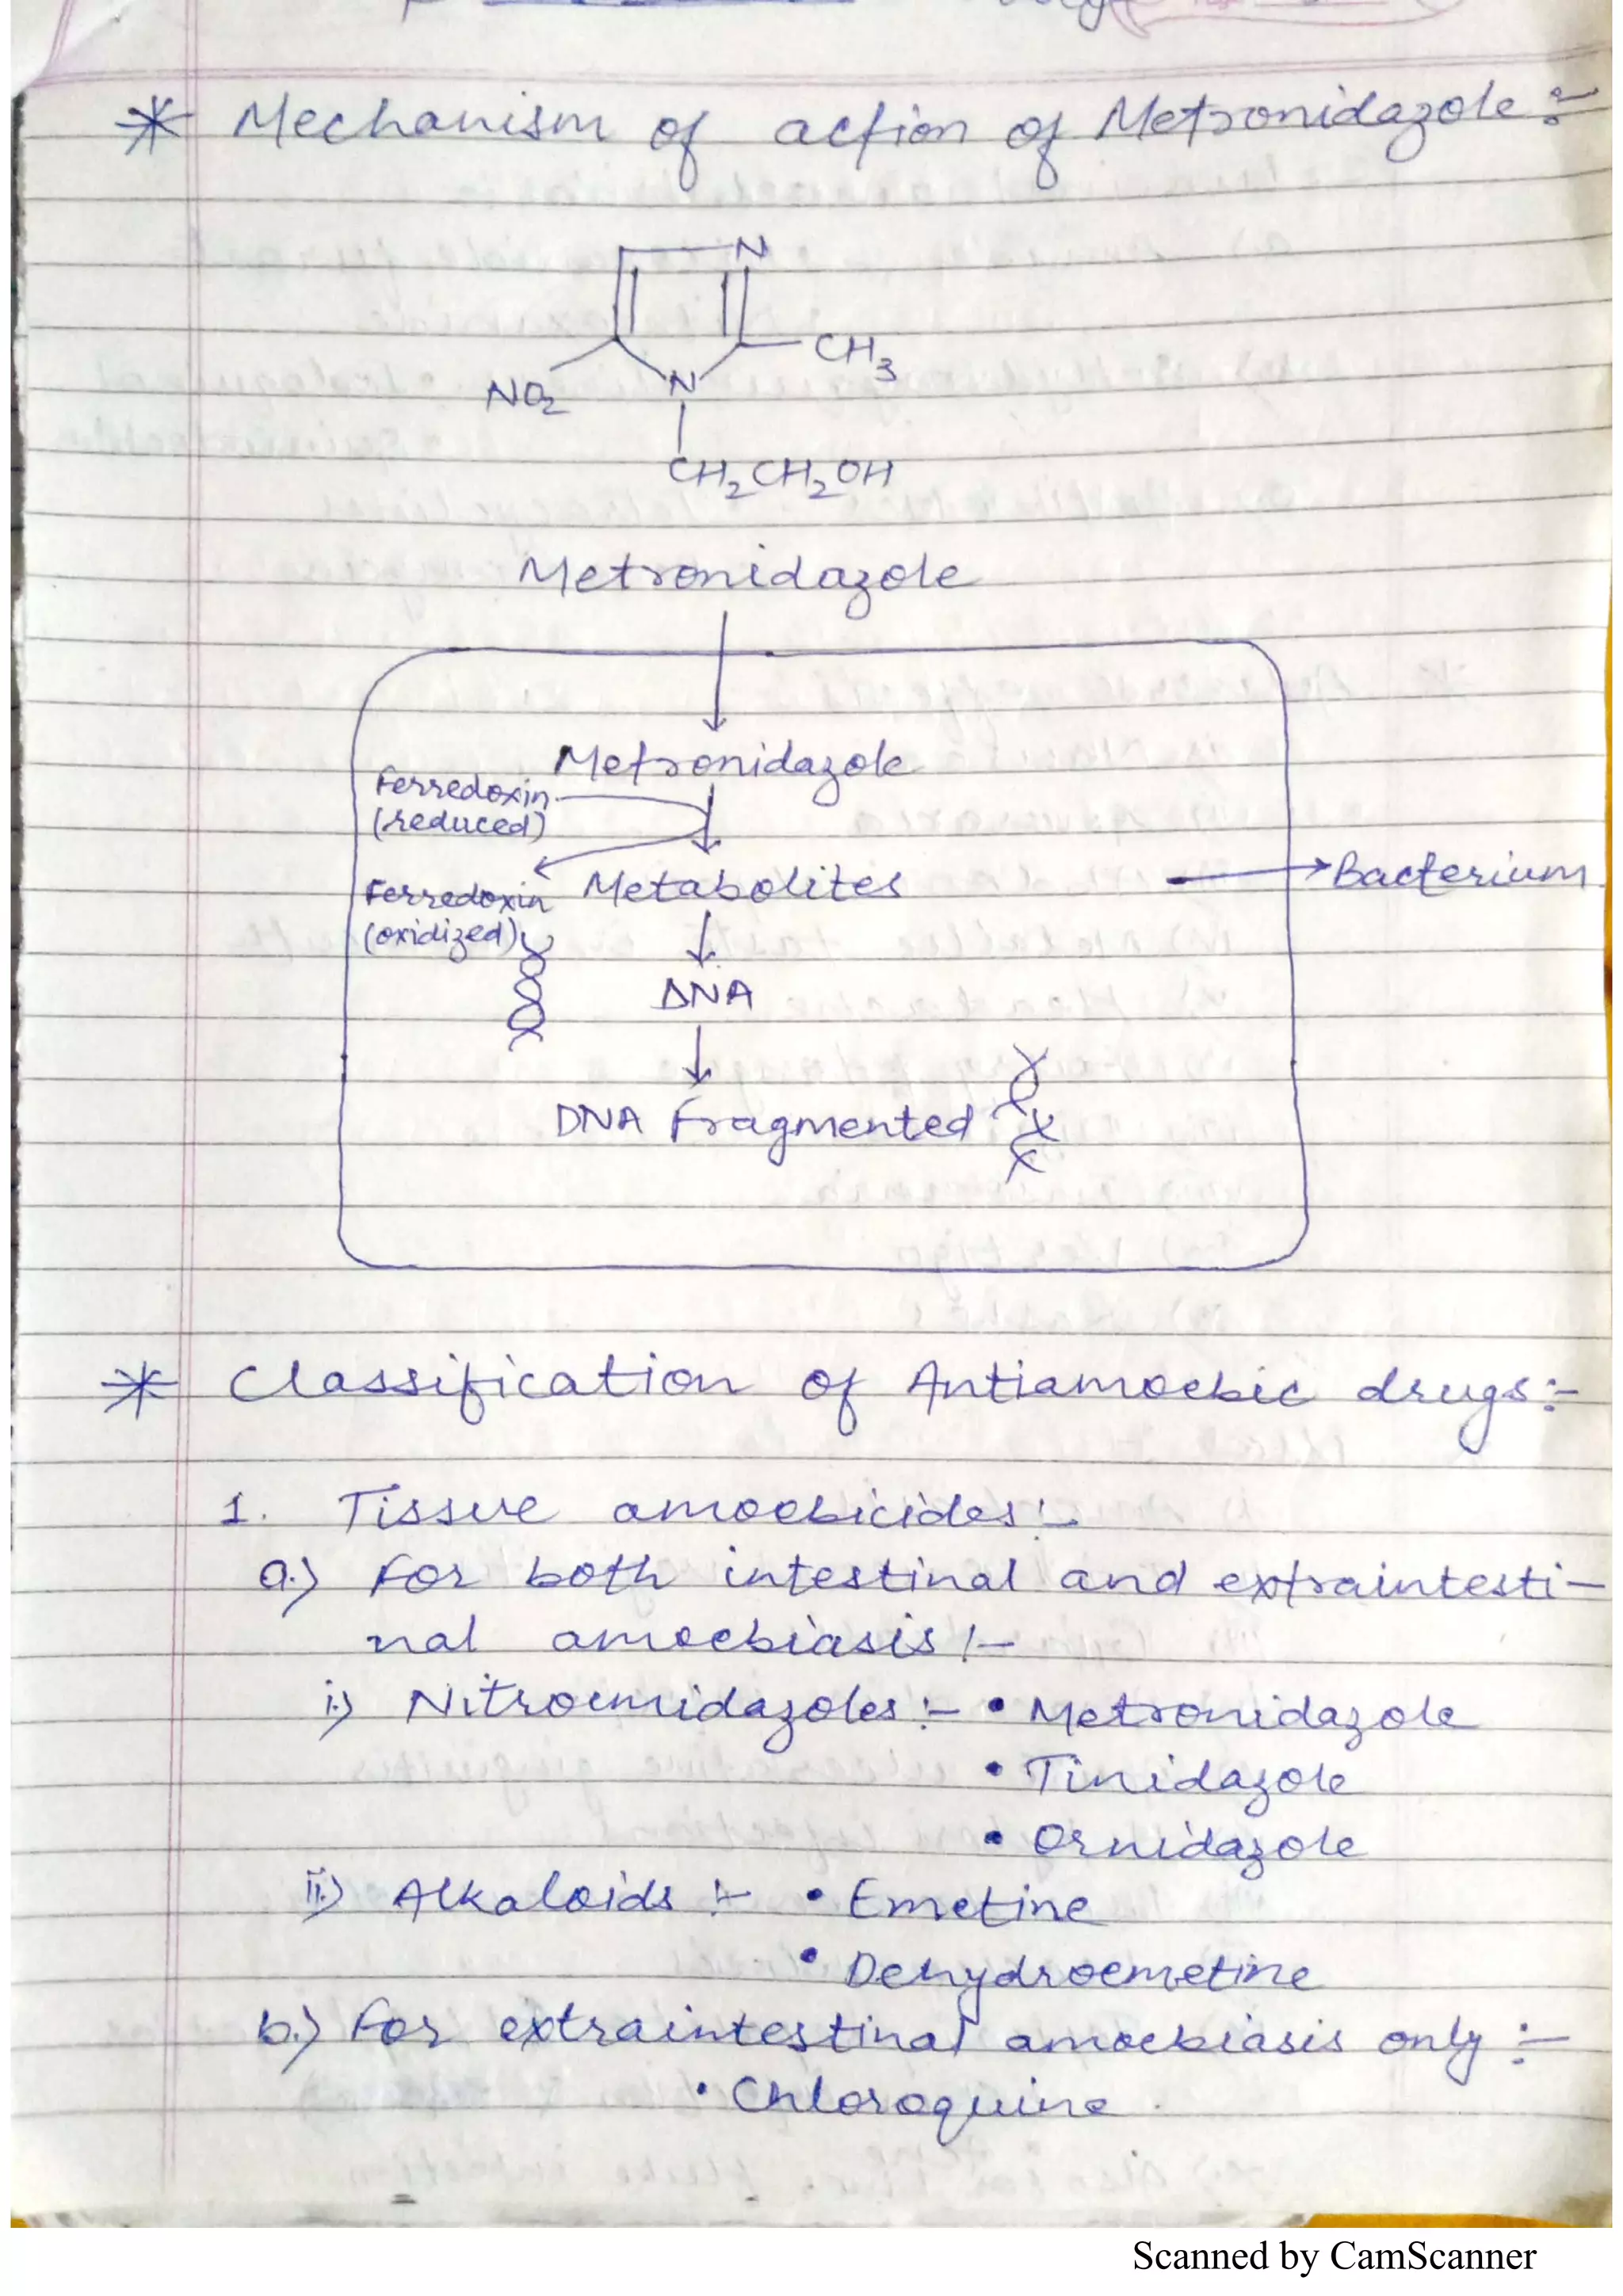 * Mechanism of action of Metronidazole :-
N
CH3
NO2
N
CH2CH2OH
Metronidazole
Metronidazole
Ferredoxin
(reduced)
Metabolites
Bacterium
Ferredoxin
(oxidized)
DNA
DNA Fragmented
* Classification of Antiamoebic drugs :-
1. Tissue amoebicides :-
a.) For both intestinal and extraintesti-
nal amoebiasis :-
i.) Nitroimidazoles :- • Metronidazole
• Tinidazole
• Ornidazole
ii.) Alkaloids :- • Emetine
• Dehydroemetine
b.) For extraintestinal amoebiasis only :-
• Chloroquine
Scanned by CamScanner